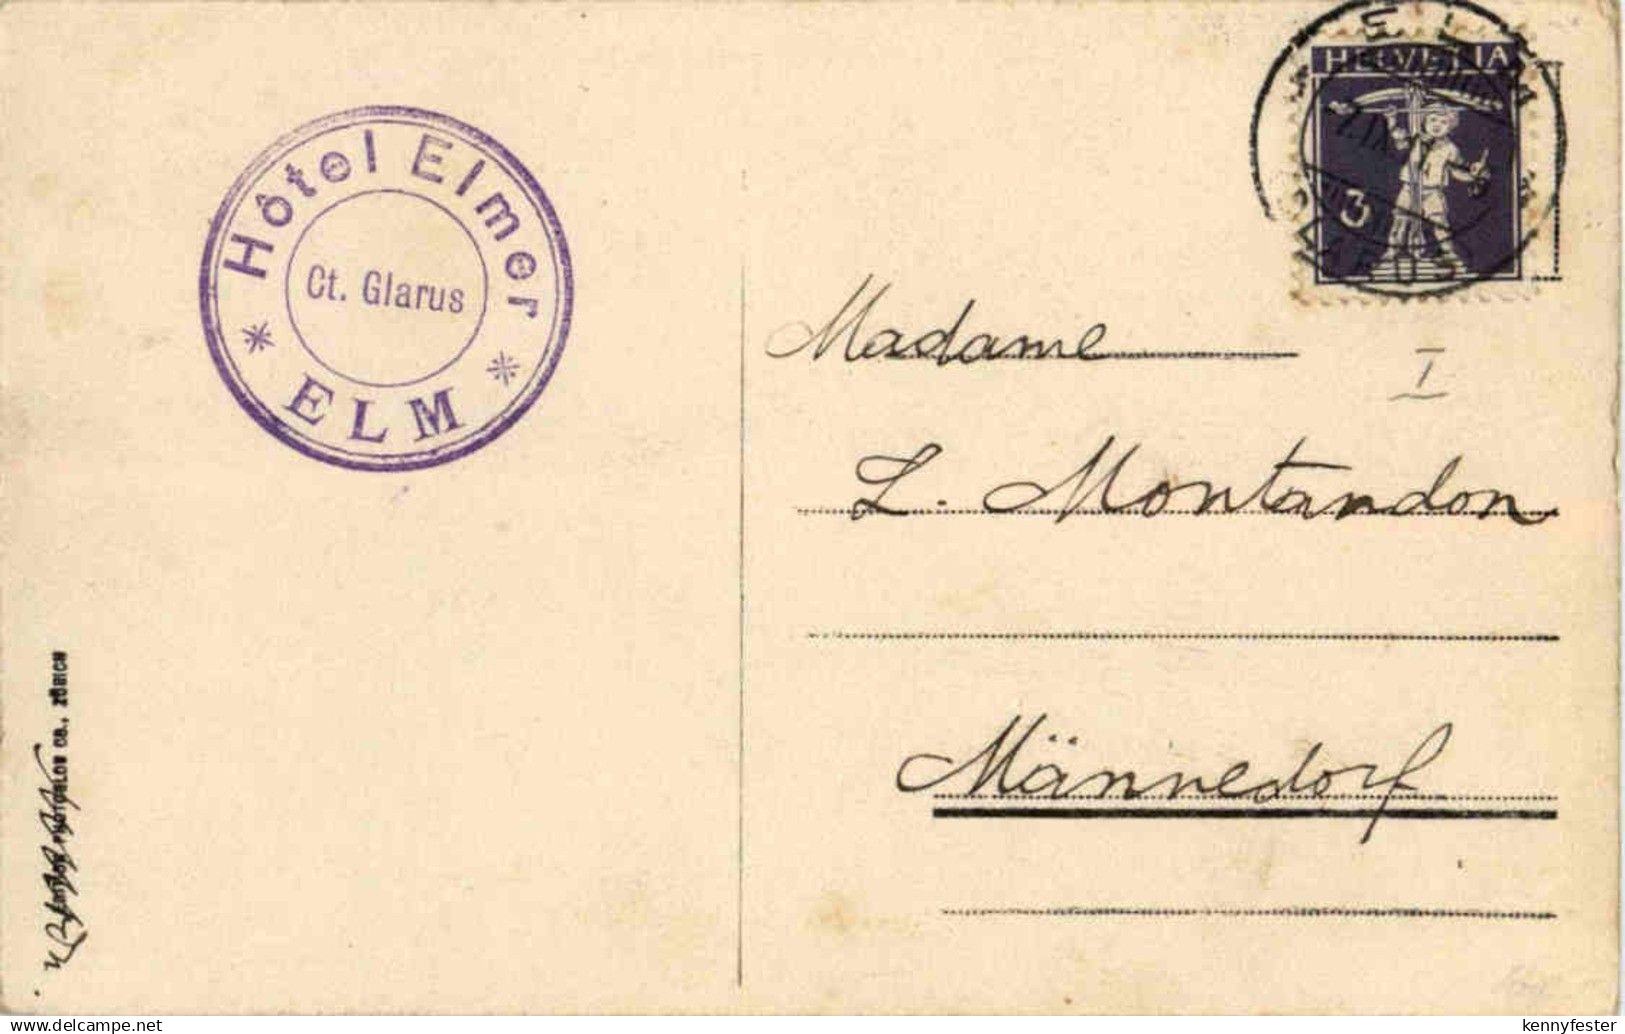 Hôtel Elmer
Ct. Glarus
* ELM *
HELVETIA
3
ELM
GLARUS
Madame
I
L. Montandon
Männedorf
CO., ZÜRICH
delcampe.net
kennyfester